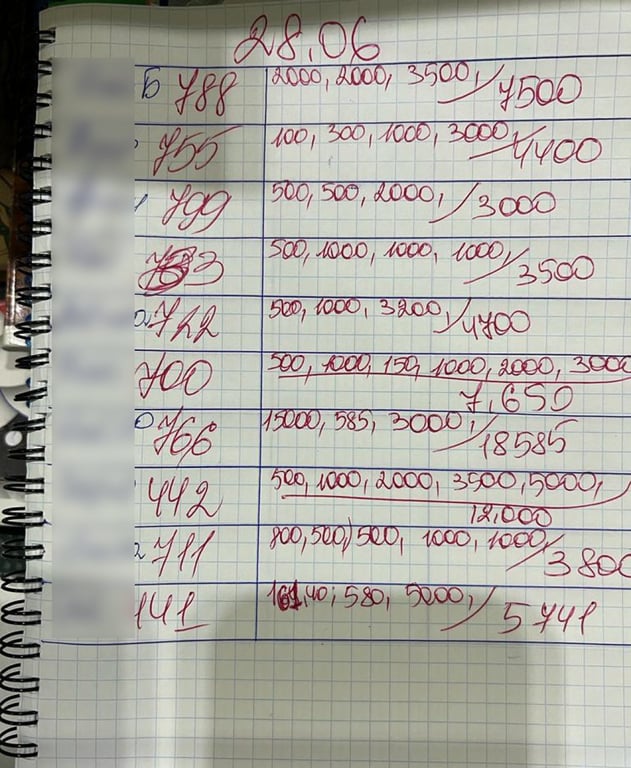 28.06
Б 788 2000, 2000, 3500, / 7500
755 100, 300, 1000, 3000, / 4400
799 500, 500, 2000, / 3000
500, 1000, 1000, 1000, / 3500
722 500, 1000, 3200, / 4700
700 500, 1000, 150, 1000, 2000, 3000
7,650
766 15000, 585, 3000, / 18585
442 500, 1000, 2000, 3500, 5000,
12.000
711 800, 500, 500, 1000, 1000, / 3800
141 40, 580, 5000, / 5741